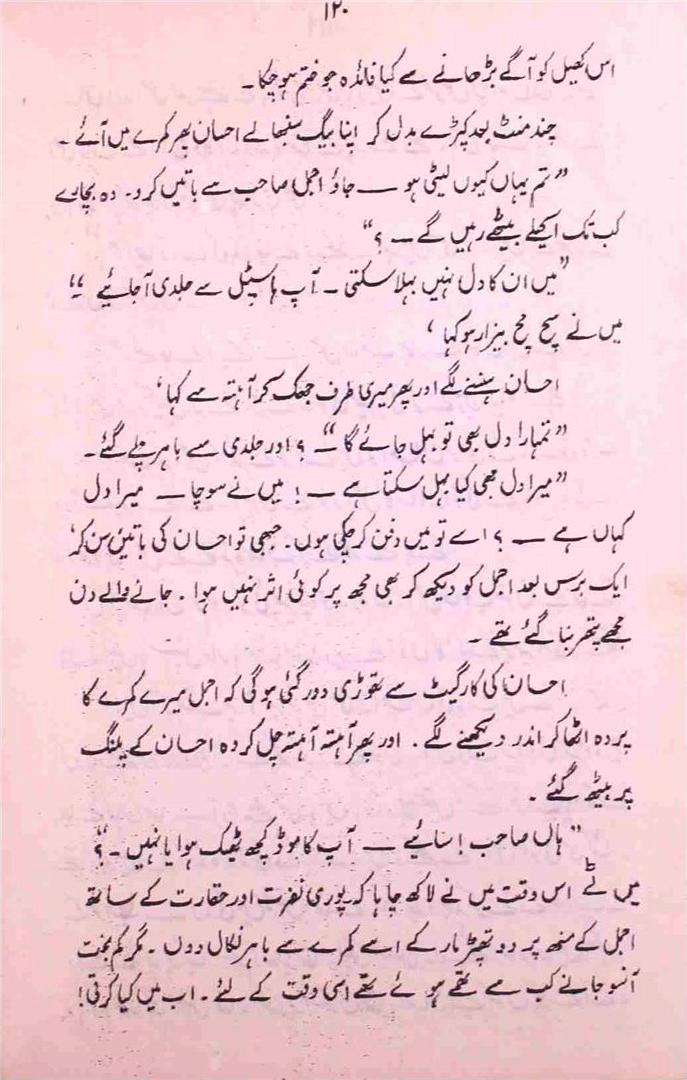 ۱۲۰
اس کھیل کو آگے بڑھانے سے کیا فائدہ جو ختم ہو چکا۔
چند منٹ بعد کپڑے بدل کر اپنا بیگ سنبھالے احسان پھر کمرے میں آئے۔
”تم یہاں کیوں لیٹی ہو — جاؤ اجمل صاحب سے باتیں کرو۔ وہ بچارے
کب تک اکیلے بیٹھے رہیں گے — ؟“
”میں ان کا دل نہیں بہلا سکتی۔ آپ ہاسپٹل سے جلدی آ جائیے“
میں نے سچ مچ بیزار ہو کہا‘
احسان ہنسنے لگے اور پھر میری طرف جھک کر آہستہ سے کہا‘
”تمہارا دل بھی تو بہل جائے گا“ — ؟ اور جلدی سے باہر چلے گئے۔
”میرا دل بھی کیا بہل سکتا ہے — ! میں نے سوچا — میرا دل
کہاں ہے — ؟ اسے تو میں دفن کر چکی ہوں۔ جبھی تو احسان کی باتیں سن کر‘
ایک برس بعد اجمل کو دیکھ کر بھی مجھ پر کوئی اثر نہیں ہوا۔ جانے والے دن
مجھے پتھر بنا گئے تھے۔
احسان کی کار گیٹ سے تھوڑی دور گئی ہو گی کہ اجمل میرے کمرے کا
پردہ اٹھا کر اندر دیکھنے لگے۔ اور پھر آہستہ آہستہ چل کر وہ احسان کے پلنگ
پر بیٹھ گئے۔
”ہاں صاحب! سنائیے — آپ کا موڈ کچھ ٹھیک ہوا یا نہیں۔“؟
میں نے اس وقت میں نے لاکھ چاہا کہ پوری نفرت اور حقارت کے ساتھ
اجمل کے منھ پر دو تھپڑ مار کے اسے کمرے سے باہر نکال دوں۔ مگر کم بخت
آنسو جانے کب سے تھمے ہوئے تھے اسی وقت کے لئے۔ اب میں کیا کرتی!